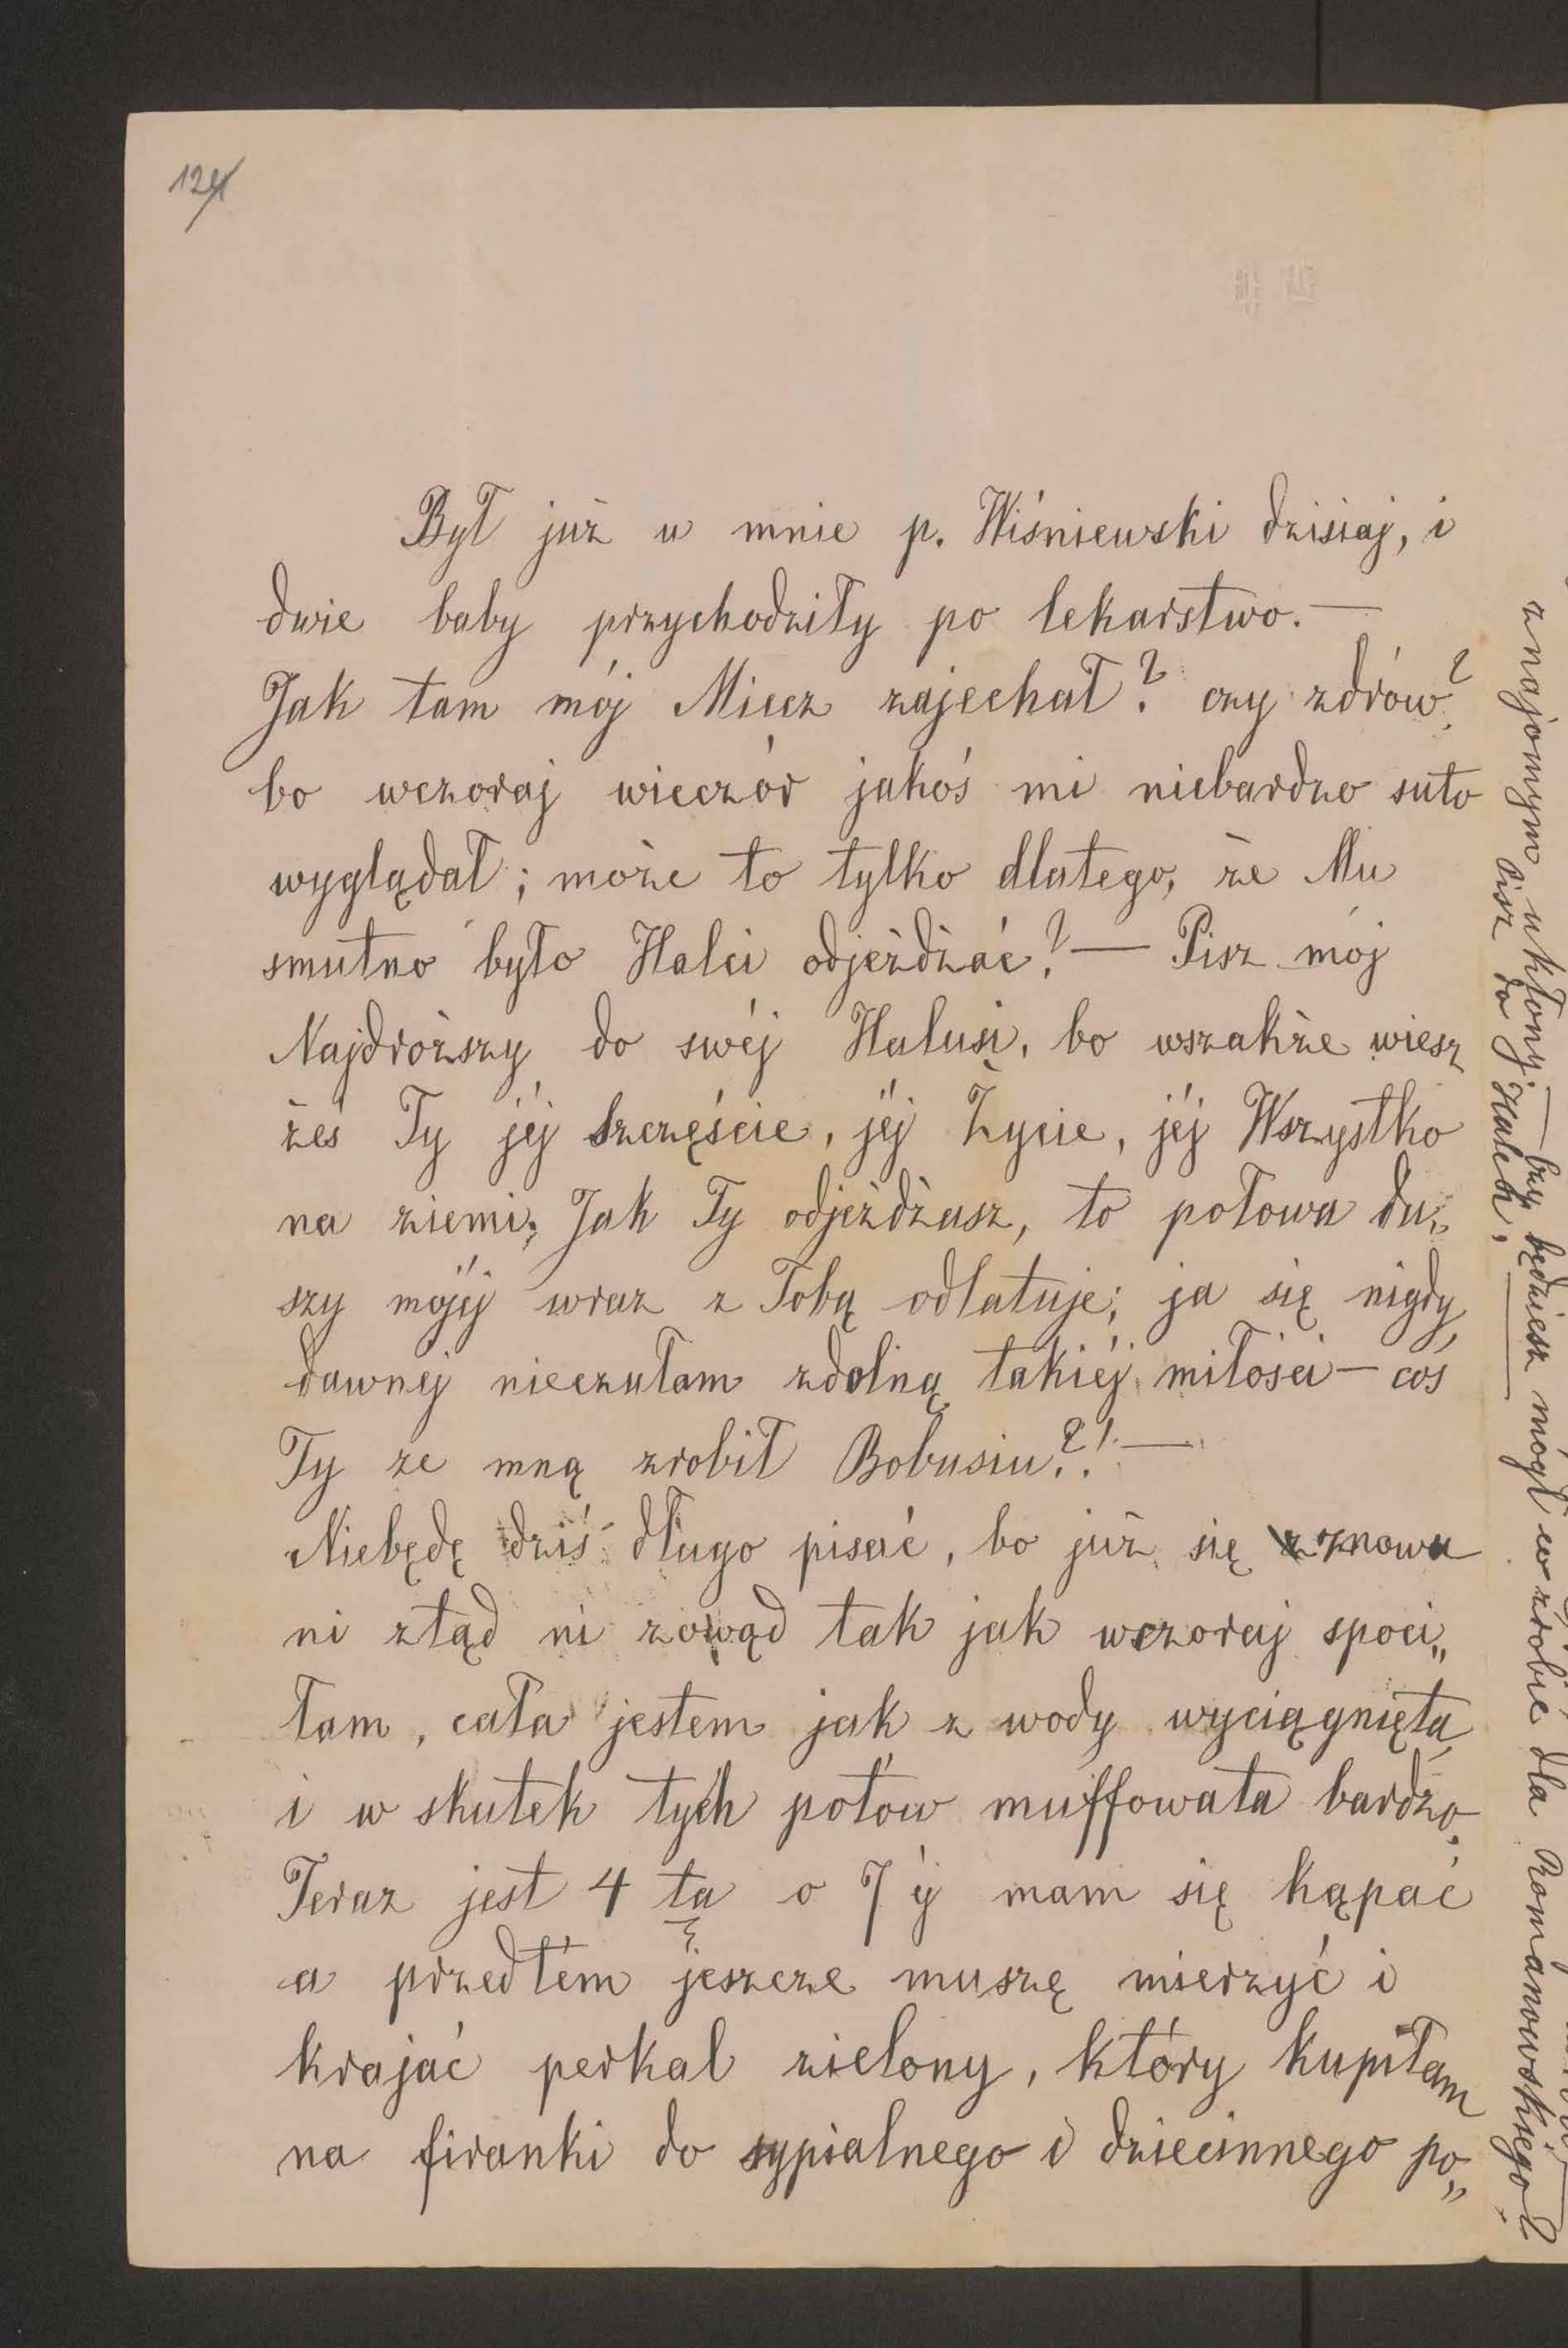 124
Był już u mnie p. Wiśniewski dzisiaj, i
dwie baby przychodziły po lekarstwo. —
Jak tam mój Miecz zajechał? czy zdrów?
bo wczoraj wieczór jakoś mi niebardzo suto
wyglądał; może to tylko dlatego, że Mu
smutno było Halci odjeżdżać? — Pisz mój
Najdroższy do swéj Halusi, bo wszakże wiesz
żeś Ty jéj Szczęście, jéj Życie, jéj Wszystko
na ziemi; Jak Ty odjeżdżasz, to połowa du„
szy mojéj wraz z Tobą odlatuje; ja się nigdy
dawnej nieczułam zdolną takiéj miłości — coś
Ty ze mną zrobił Bobusiu?! —
Niebędę dziś długo pisać, bo już się znowu
ni ztąd ni zowąd tak jak wczoraj spoci„
łam, cała jestem jak z wody wyciągnięta,
i w skutek tych potów muffowata bardzo.
Teraz jest 4 ta o 7 éj mam się kąpać
a przedtém jeszcze muszę mierzyć i
krajać perkal zielony, który kupiłam
na firanki do sypialnego i dziecinnego po„
znajomym ukłony. — Czy będziesz mógł co zrobić dla Romanowskiego?
Pisz do Halci.